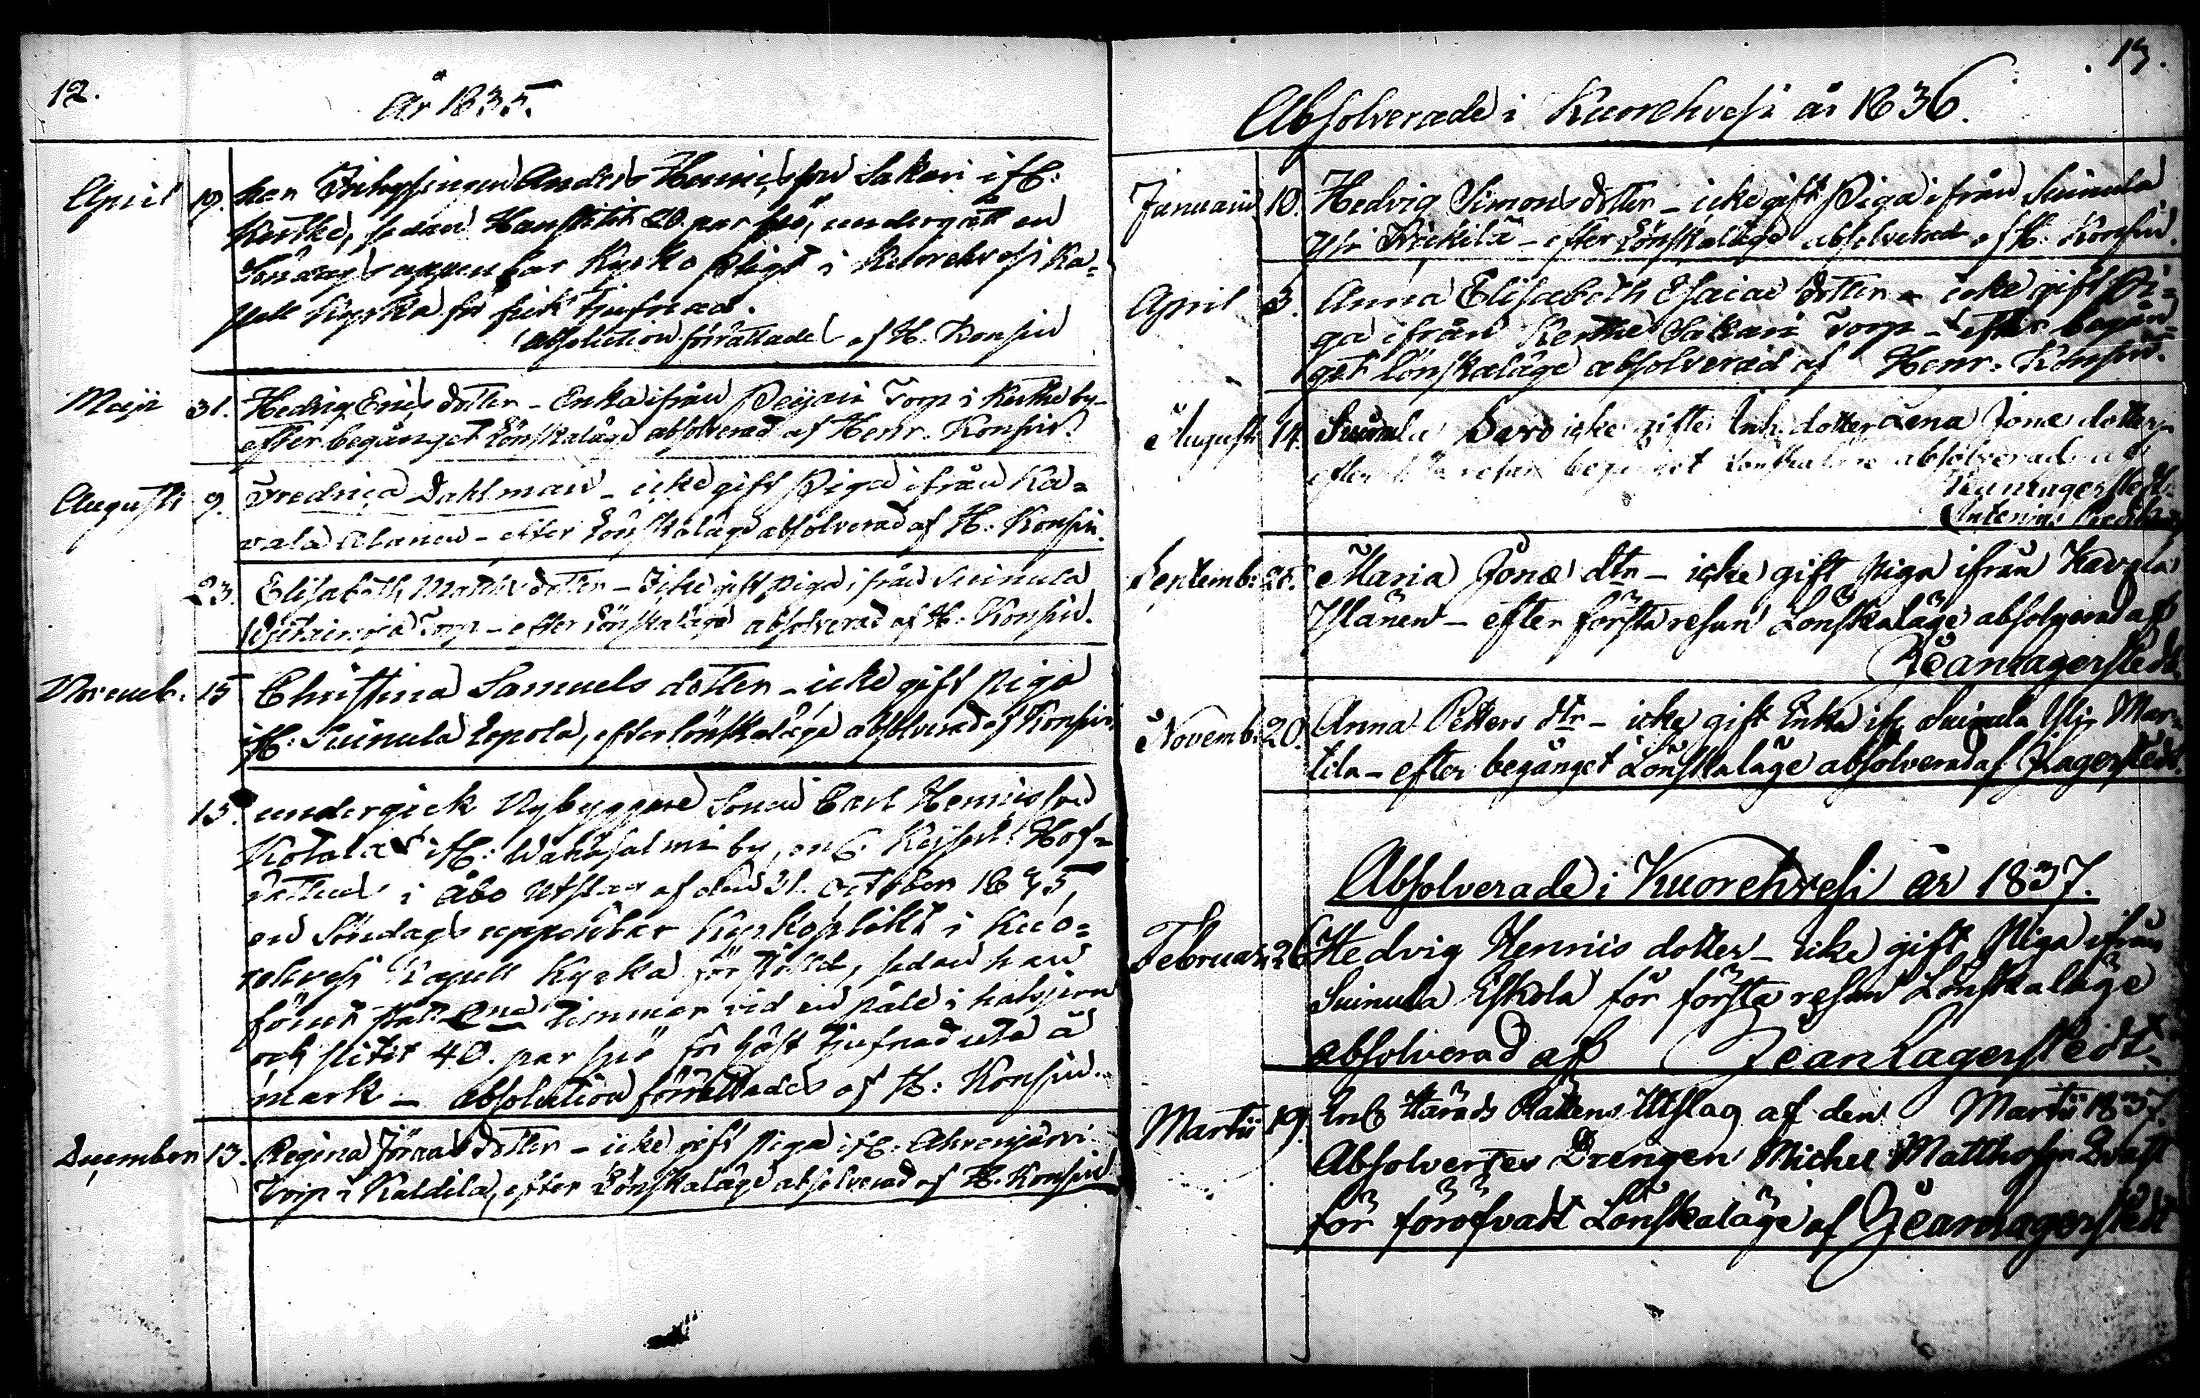 12.
År 1835.
April 19. han Inhysingen Anders Henricsson Sakari ifr:
Kertke, sedan Han slitit 20 par spö, undergått en
Söndags uppenbar Kyrko pligt i Kuorehvesi Ka=
pell Kyrka för tjufnad.
Absolution förrättades af H. Konsin
Maji 31. Hedvig Erics dotter - Enka ifrån Peijari Torp i Kertke by-
efter begånget Lönskaläge absolverad af Henr. Konsin.
Augusti 9. Fredrica Dahlman - icke gift Piga ifrån Ka=
vala Alanen - efter Lönskaläge absolverad af H. Konsin.
23. Elisabeth Matts dotter - Icke gift piga ifrån Suinula
Torp - efter Lönskaläge absolverad af H. Konsin.
Novemb. 15 Christina Samuels dotter - icke gift piga
ifr: Suinula Eopola, efter lönskaläge absolverad af Konsin
15. undergick Nybyggare Sonen Carl Henricsson
Kotala ifr: Wahasalmi by, enl. Kejserl: Hof=
rättens i Åbo Utslag af den 31. October 1835,
en Söndags uppenbar Kyrkoplikt i Kuo=
rehvesi Capell Kyrka för stöld, sedan han
två timmar vid en påle i halsjern
och slitit 40. par spö för häst tjufnad ute å
mark - absolution förrättades af H: Konsin.
December 13. Regina Jöran dotter - icke gift piga ifr: Ahrenjärvi
Torp i Kaldila, efter Lönskaläge absolverad af H. Konsin
13.
Absolverade i Kuorehvesi år 1836.
Januarii 10. Hedvig Simons dotter - icke gift Piga ifrån Suinula
Yli - efter Lönskaläge absolverad af H. Konsin.
April 3. Anna Elisabeth Esaiae dotter - icke gift Pi=
ga ifrån Kertke Sakari Torp - efter begån=
get lönskaläge absolverad af Henr. Konsin.
Augusti 14. Suinula icke gifte Inh. dotter Lena Jonae dotter
efter resan begånget Lönskaläge absolverad af
Jean Lagerstedt
Septemb. 25. Maria Jonae dtr - icke gift piga ifrån Kavala
Ylänen - efter första resan Lönskaläge absolverad af
Jean Lagerstedt.
Novemb. 20. Anna Petters dtr - icke gift Enka ifr Suinula Ylij Mar=
tila - efter begånget Lönskaläge absolverad af J Lagerstedt.
Absolverade i Kuorehvesi år 1837.
Februar. 26 Hedvig Henrics dotter - icke gift Piga ifrån
Suinula Eskola för första resan Lönskaläge
absolverad af Jean Lagerstedt.
Martii 19. Enl Härads Rättens Utslag af den Martii 1837
Absolvertes Drengen Michel Matthsson
för föröfvadt Lönskaläge af Jean Lagerstedt